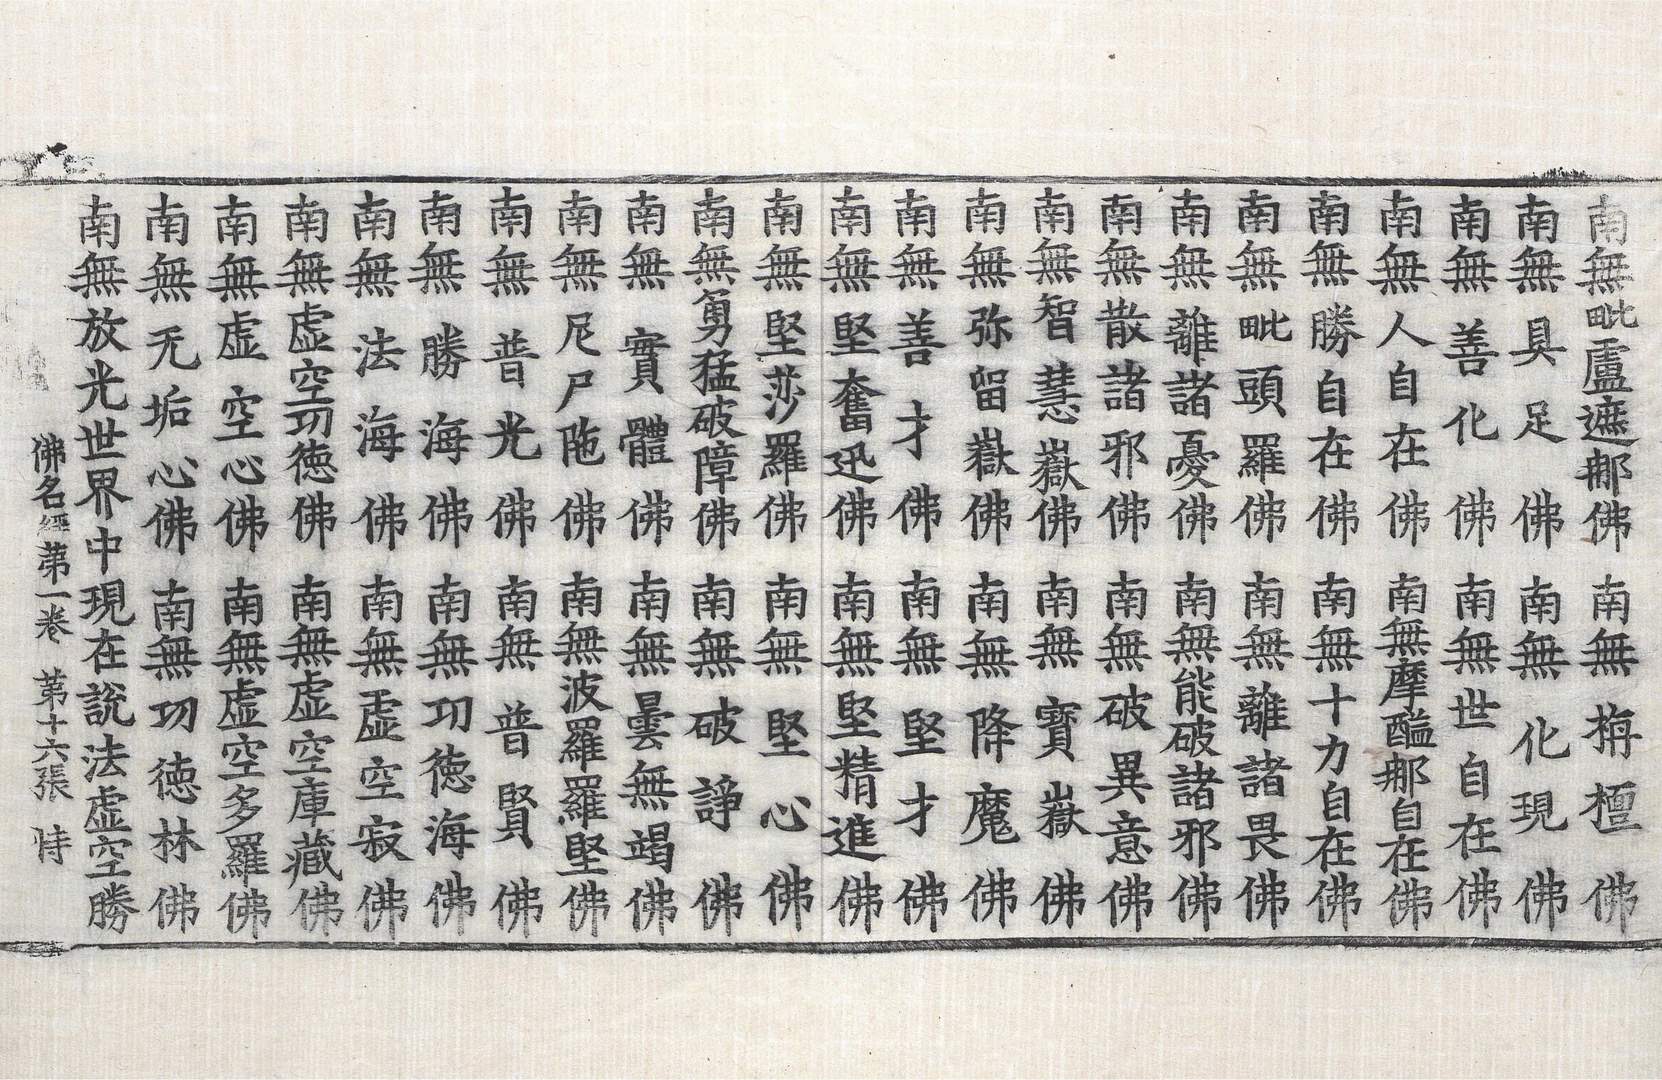 南無毗盧遮那佛南無栴檀佛
南無具足佛南無化現佛
南無善化佛南無世自在佛
南無人自在佛南無摩醯那自在佛
南無勝自在佛南無十力自在佛
南無毗頭羅佛南無離諸畏佛
南無離諸憂佛南無能破諸邪佛
南無散諸邪佛南無破異意佛
南無智慧嶽佛南無寶嶽佛
南無弥留嶽佛南無降魔佛
南無善才佛南無堅才佛
南無堅奮迅佛南無堅精進佛
南無堅莎羅佛南無堅心佛
南無勇猛破障佛南無破諍佛
南無實體佛南無曇無竭佛
南無尼尸陁佛南無波羅羅堅佛
南無普光佛南無普賢佛
南無勝海佛南無功徳海佛
南無法海佛南無虛空寂佛
南無虛空功徳佛南無虛空庫藏佛
南無虛空心佛南無虛空多羅佛
南無无垢心佛南無功徳林佛
南無放光世界中現在說法虛空勝
佛名經第一卷 第十六張 恃